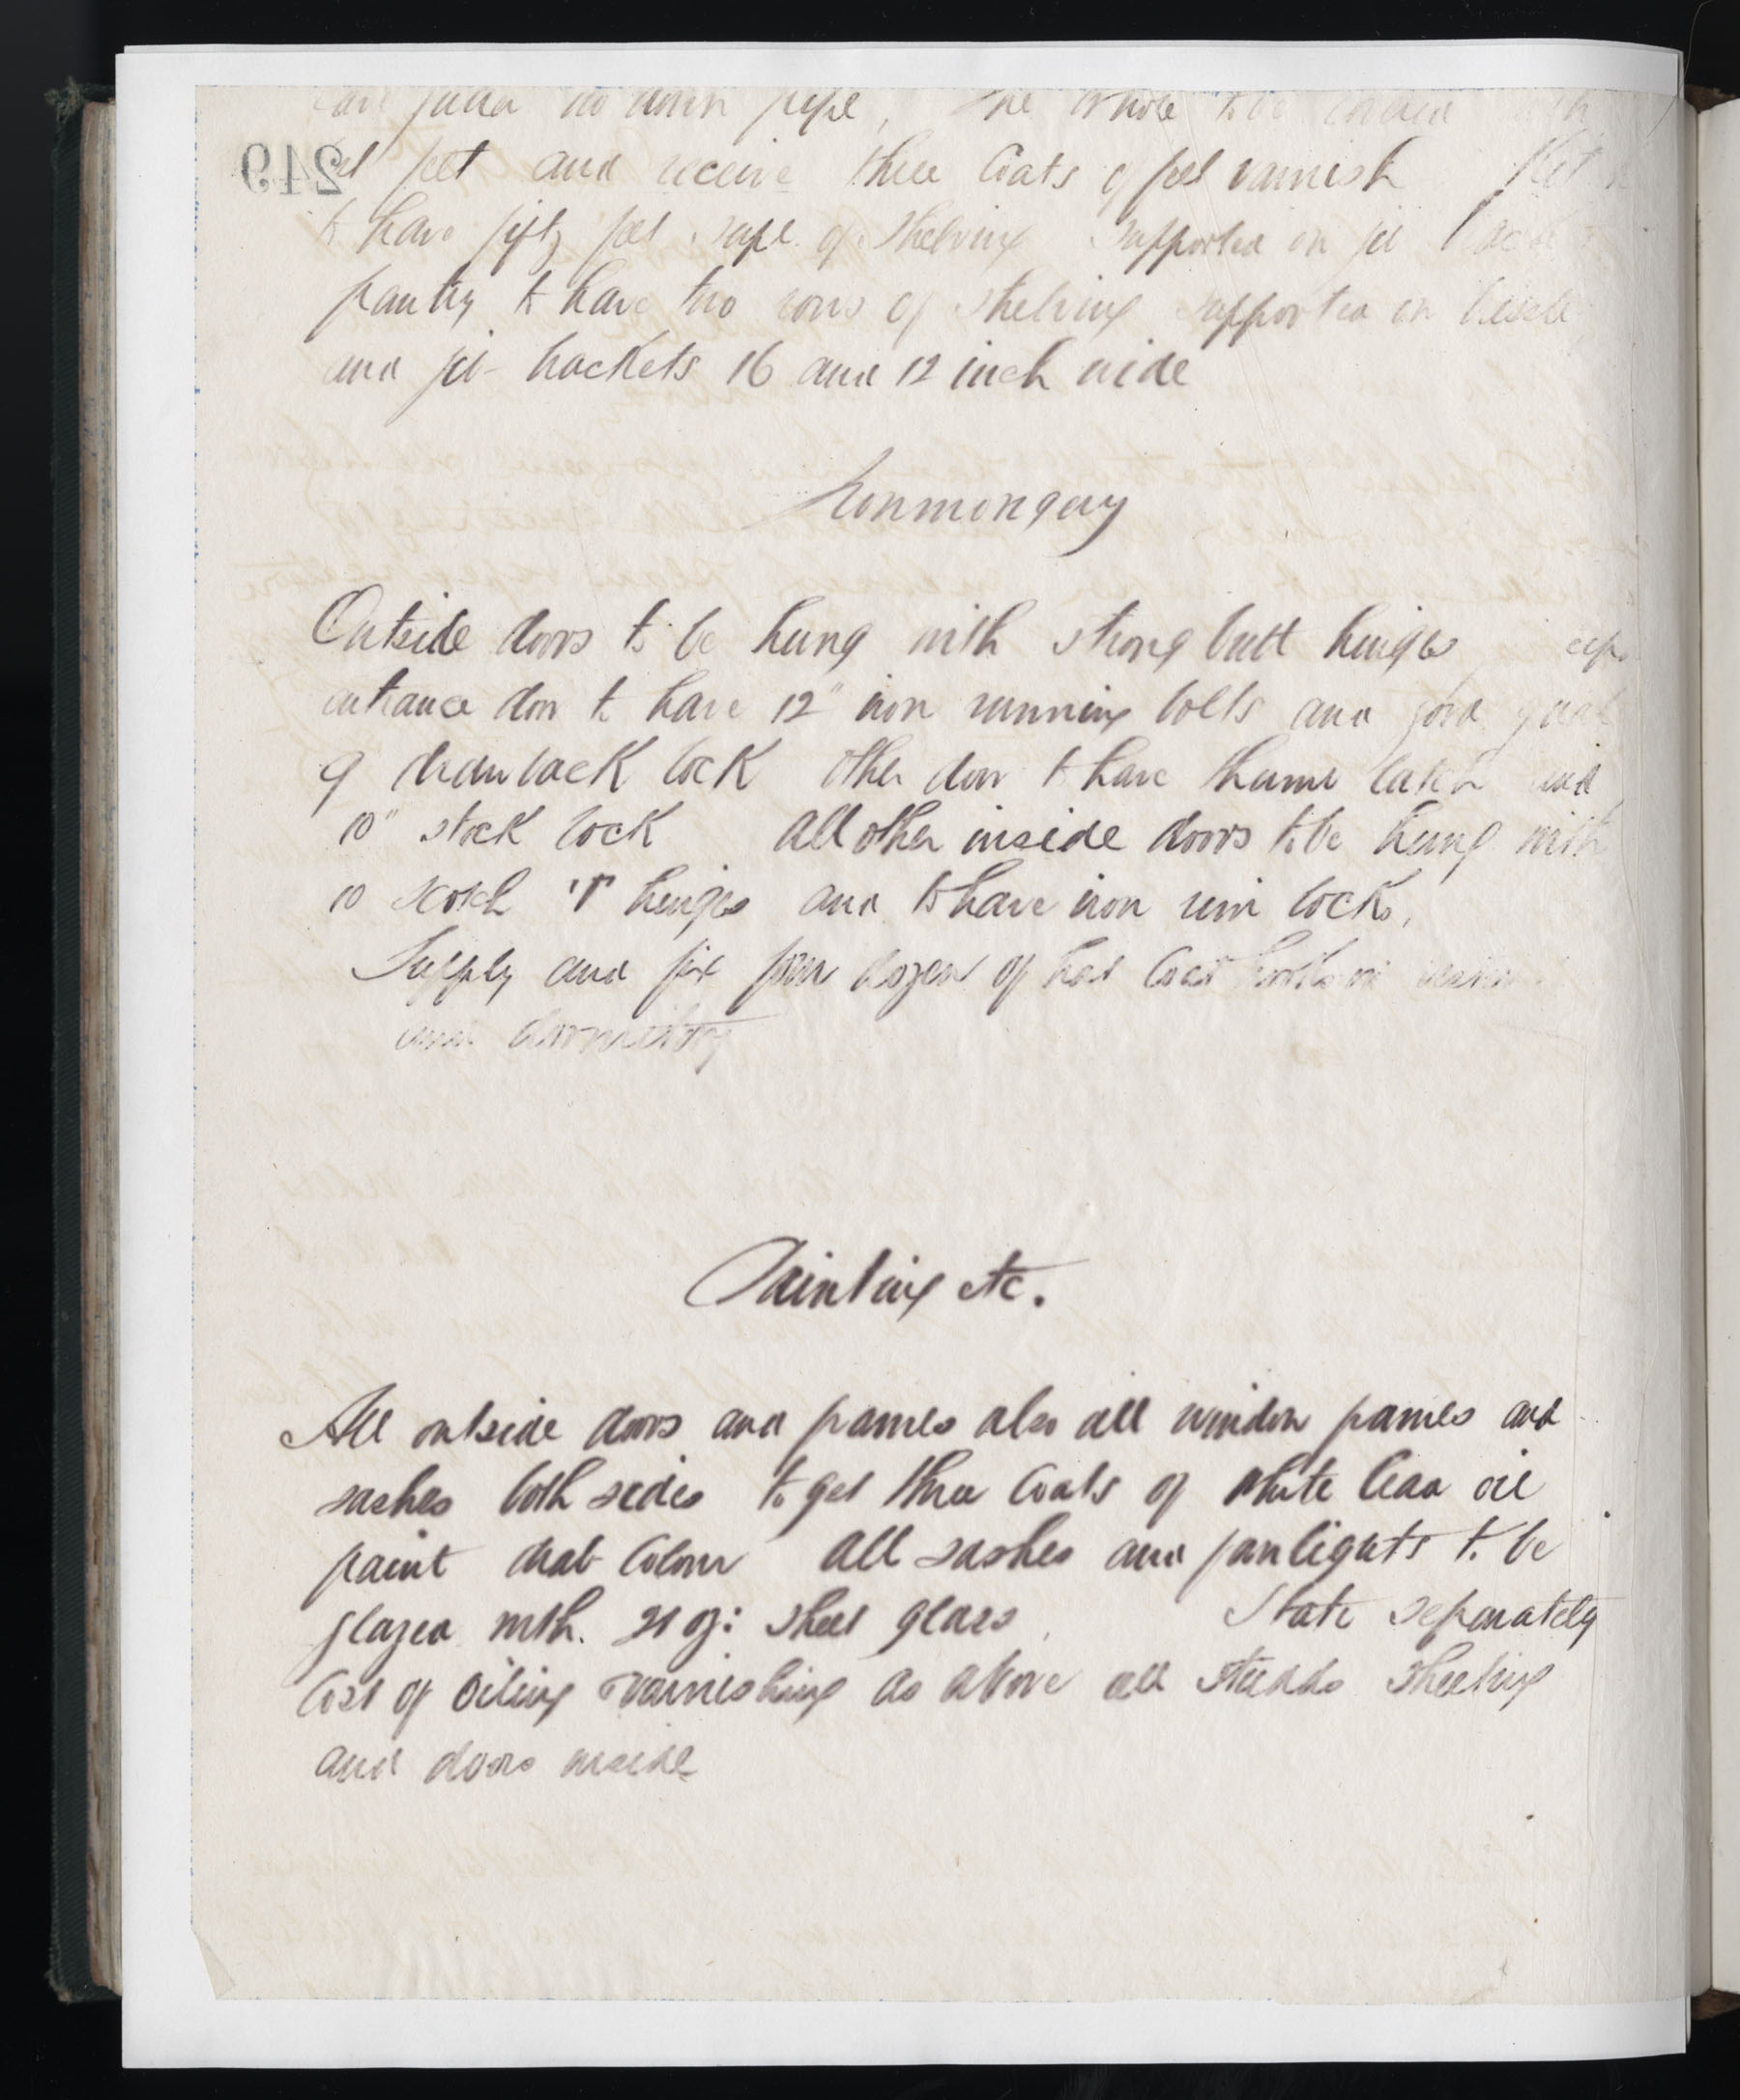 pipe, The whole to be
249
and receive three Coats of varnish
to have fifty feet supl. of Shelving Supported on fit
pantry to have two rows of Shelving supported on
and fit brackets 16 and 12 inch wide
Ironmongery
Outside doors to be hung with strong butt hinges
entrance door to have 12" iron running bolts and good
of drawback lock other door to have thumb latch and
10" stock lock all other inside doors to be hung with
10 scotch T hinges and to have iron rim locks.
Supply and fix four dozen of hat Coat hooks in
and dormitory
Painting etc.
All outside doors and frames also all window frames and
sashes both sides to get three Coats of white lead oil
paint drab Colour all sashes and fanlights to be
glazed with 21 oz: sheet glass State separately
Cost of oiling varnishing as above all studds sheeting
and doors inside